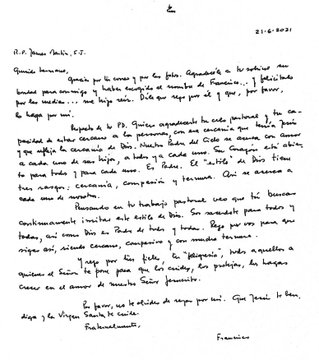 21-6-2021
R.P. James Martin, S.J.
Querido hermano,
Gracias por tu correo y por las fotos. Agradecele a tu sobrino su
bondad para conmigo y haber escogido el nombre de Francisco... y felicítalo
por las medias... me hizo reír. Dile que rezo por él y que, por favor,
lo haga por mí.
Respecto de tu P.D. Quiero agradecerte tu celo pastoral y tu ca-
pacidad de estar cercano a las personas, con esa cercanía que tenía Jesús
y que refleja la cercanía de Dios. Nuestro Padre del Cielo se acerca con amor
a cada uno de sus hijos, a todos y a cada uno. Su corazón está abier-
to para todos y para cada uno. Es Padre. El "estilo" de Dios tiene
tres rasgos: cercanía, compasión y ternura. Así se acerca a
cada uno de nosotros.
Pensando en tu trabajo pastoral veo que tú buscas
continuamente imitar este estilo de Dios. Sos sacerdote para todos y
todas, así como Dios es Padre de todos y todas. Rezo por vos para que
sigas así, siendo cercano, compasivo y con mucha ternura.
Y rezo por tus fieles, tus "feligreses", todos aquellos a
quienes el Señor te pone para que los cuides, los protejas, los hagas
crecer en el amor de nuestro Señor Jesucristo.
Por favor, no te olvides de rezar por mí. Que Jesús te ben-
diga y la Virgen Santa te cuide.
Fraternalmente,
Francisco